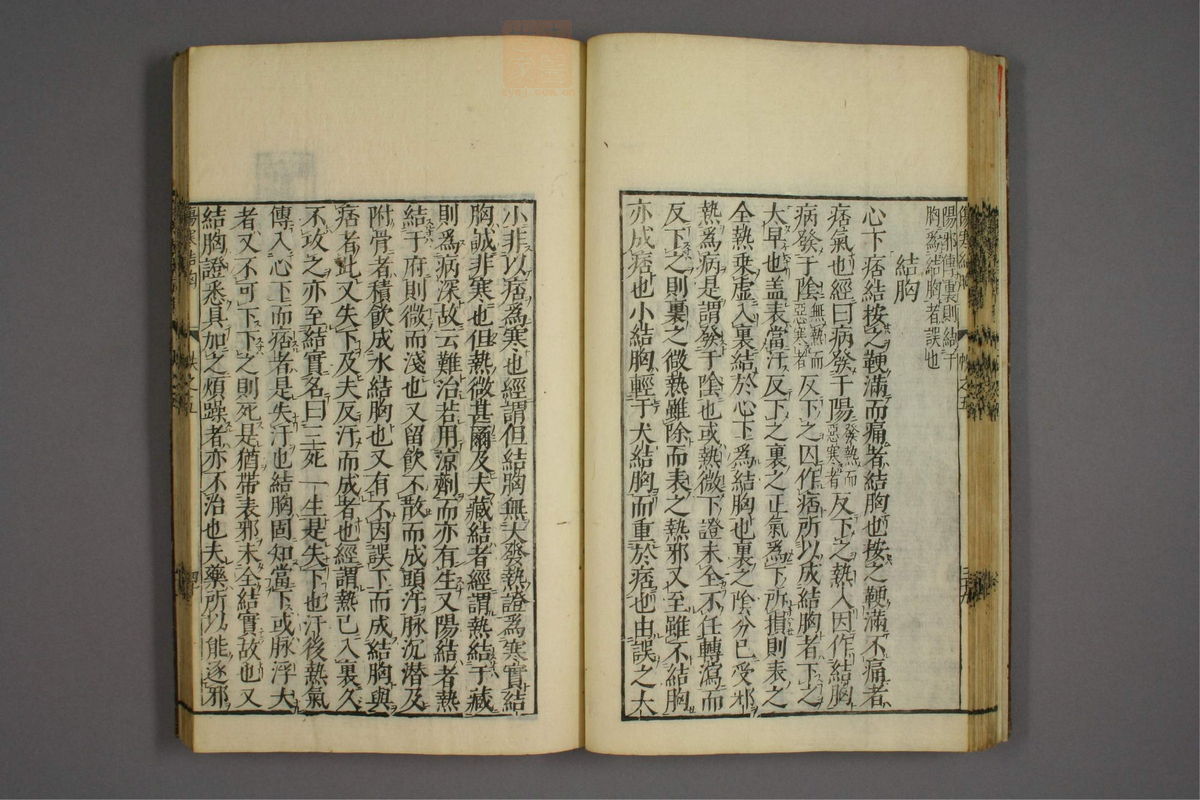 陽邪傳裏則結于
胸爲結胸者誤也
結胸
心下痞結按之鞕滿而痛者結胸也按之鞕滿不痛者
痞氣也經曰病發于陽發熱而惡寒者反下之熱入因作結胸
病發于陰無熱而惡寒者反下之因作痞所以成結胸者下之
太早也盖表當汗反下之裏之正氣爲下所損則表之
全熱乘虚入裏結於心下爲結胸也裏之陰分已受邪
熱爲病是謂發于陰也或熱微下證未全不任轉瀉而
反下之則裏之微熱雖除而表之熱邪又至雖不結胸
亦成痞也小結胸輕于大結胸而重於痞也由誤之大
小非以痞為寒也經謂但結胸無大發熱證爲寒實結
胸誠非寒也但熱微甚爾及夫藏結者經謂熱結于藏
則爲病深故云難治若用凉劑而亦有生又陽結者熱
結于府則微而淺也又留飲不散而成頭汗脉沉潜及
附骨者積飲成水結胸也又有不因誤下而成結胸與
痞者此又失下及夫反汗而成者也經謂熱已入裏久
不攻之亦至結實名曰三死一生是失下也汗後熱氣
傳入心下而痞者是失汗也結胸固知當下或脉浮大
者又不可下下之則死是猶帶表邪未全結實故也又
結胸證悉具加之煩躁者亦不治也夫藥所以能逐邪